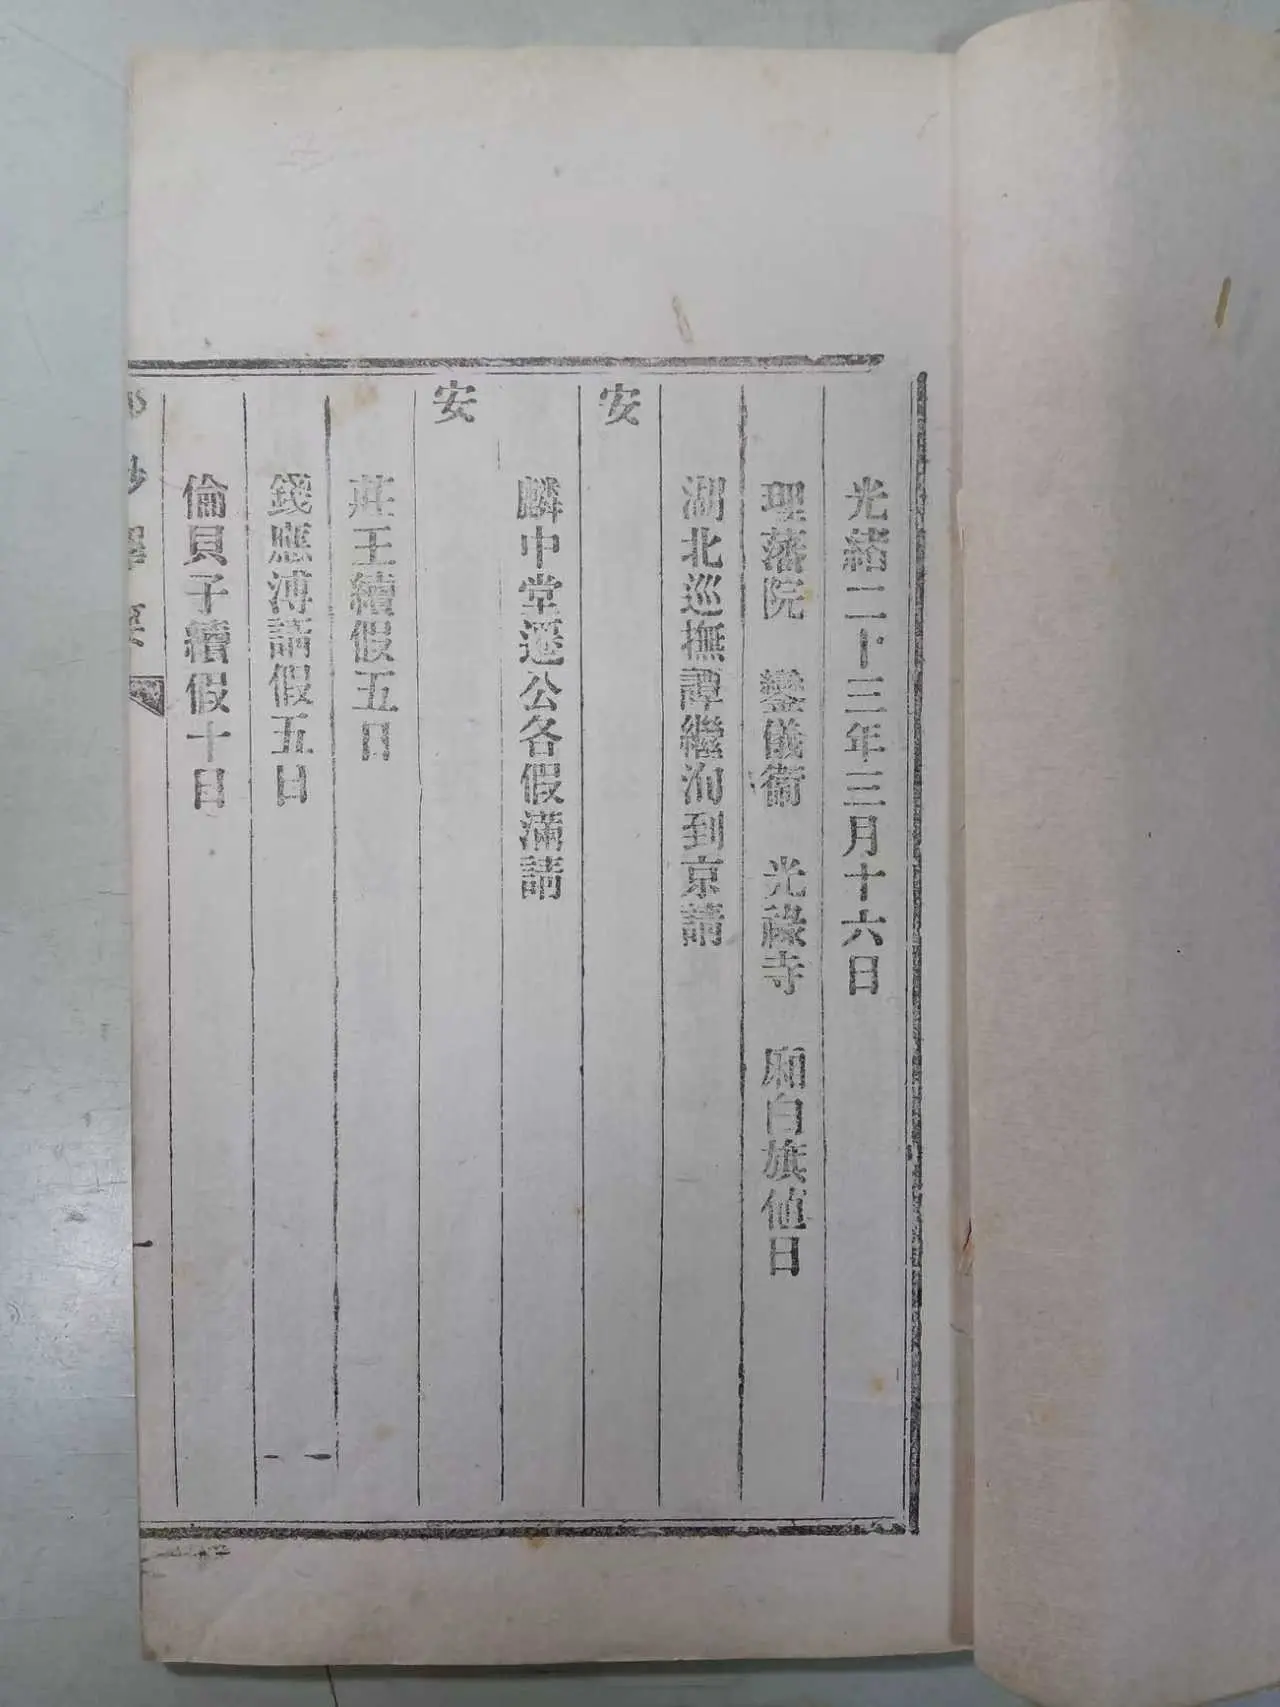 光緒二十三年三月十六日
理藩院　鑾儀衛　光祿寺　廂白旗値日
湖北巡撫譚繼洵到京請
安
麟中堂遜公各假滿請
安
莊王續假五日
錢應溥請假五日
倫貝子續假十日
一